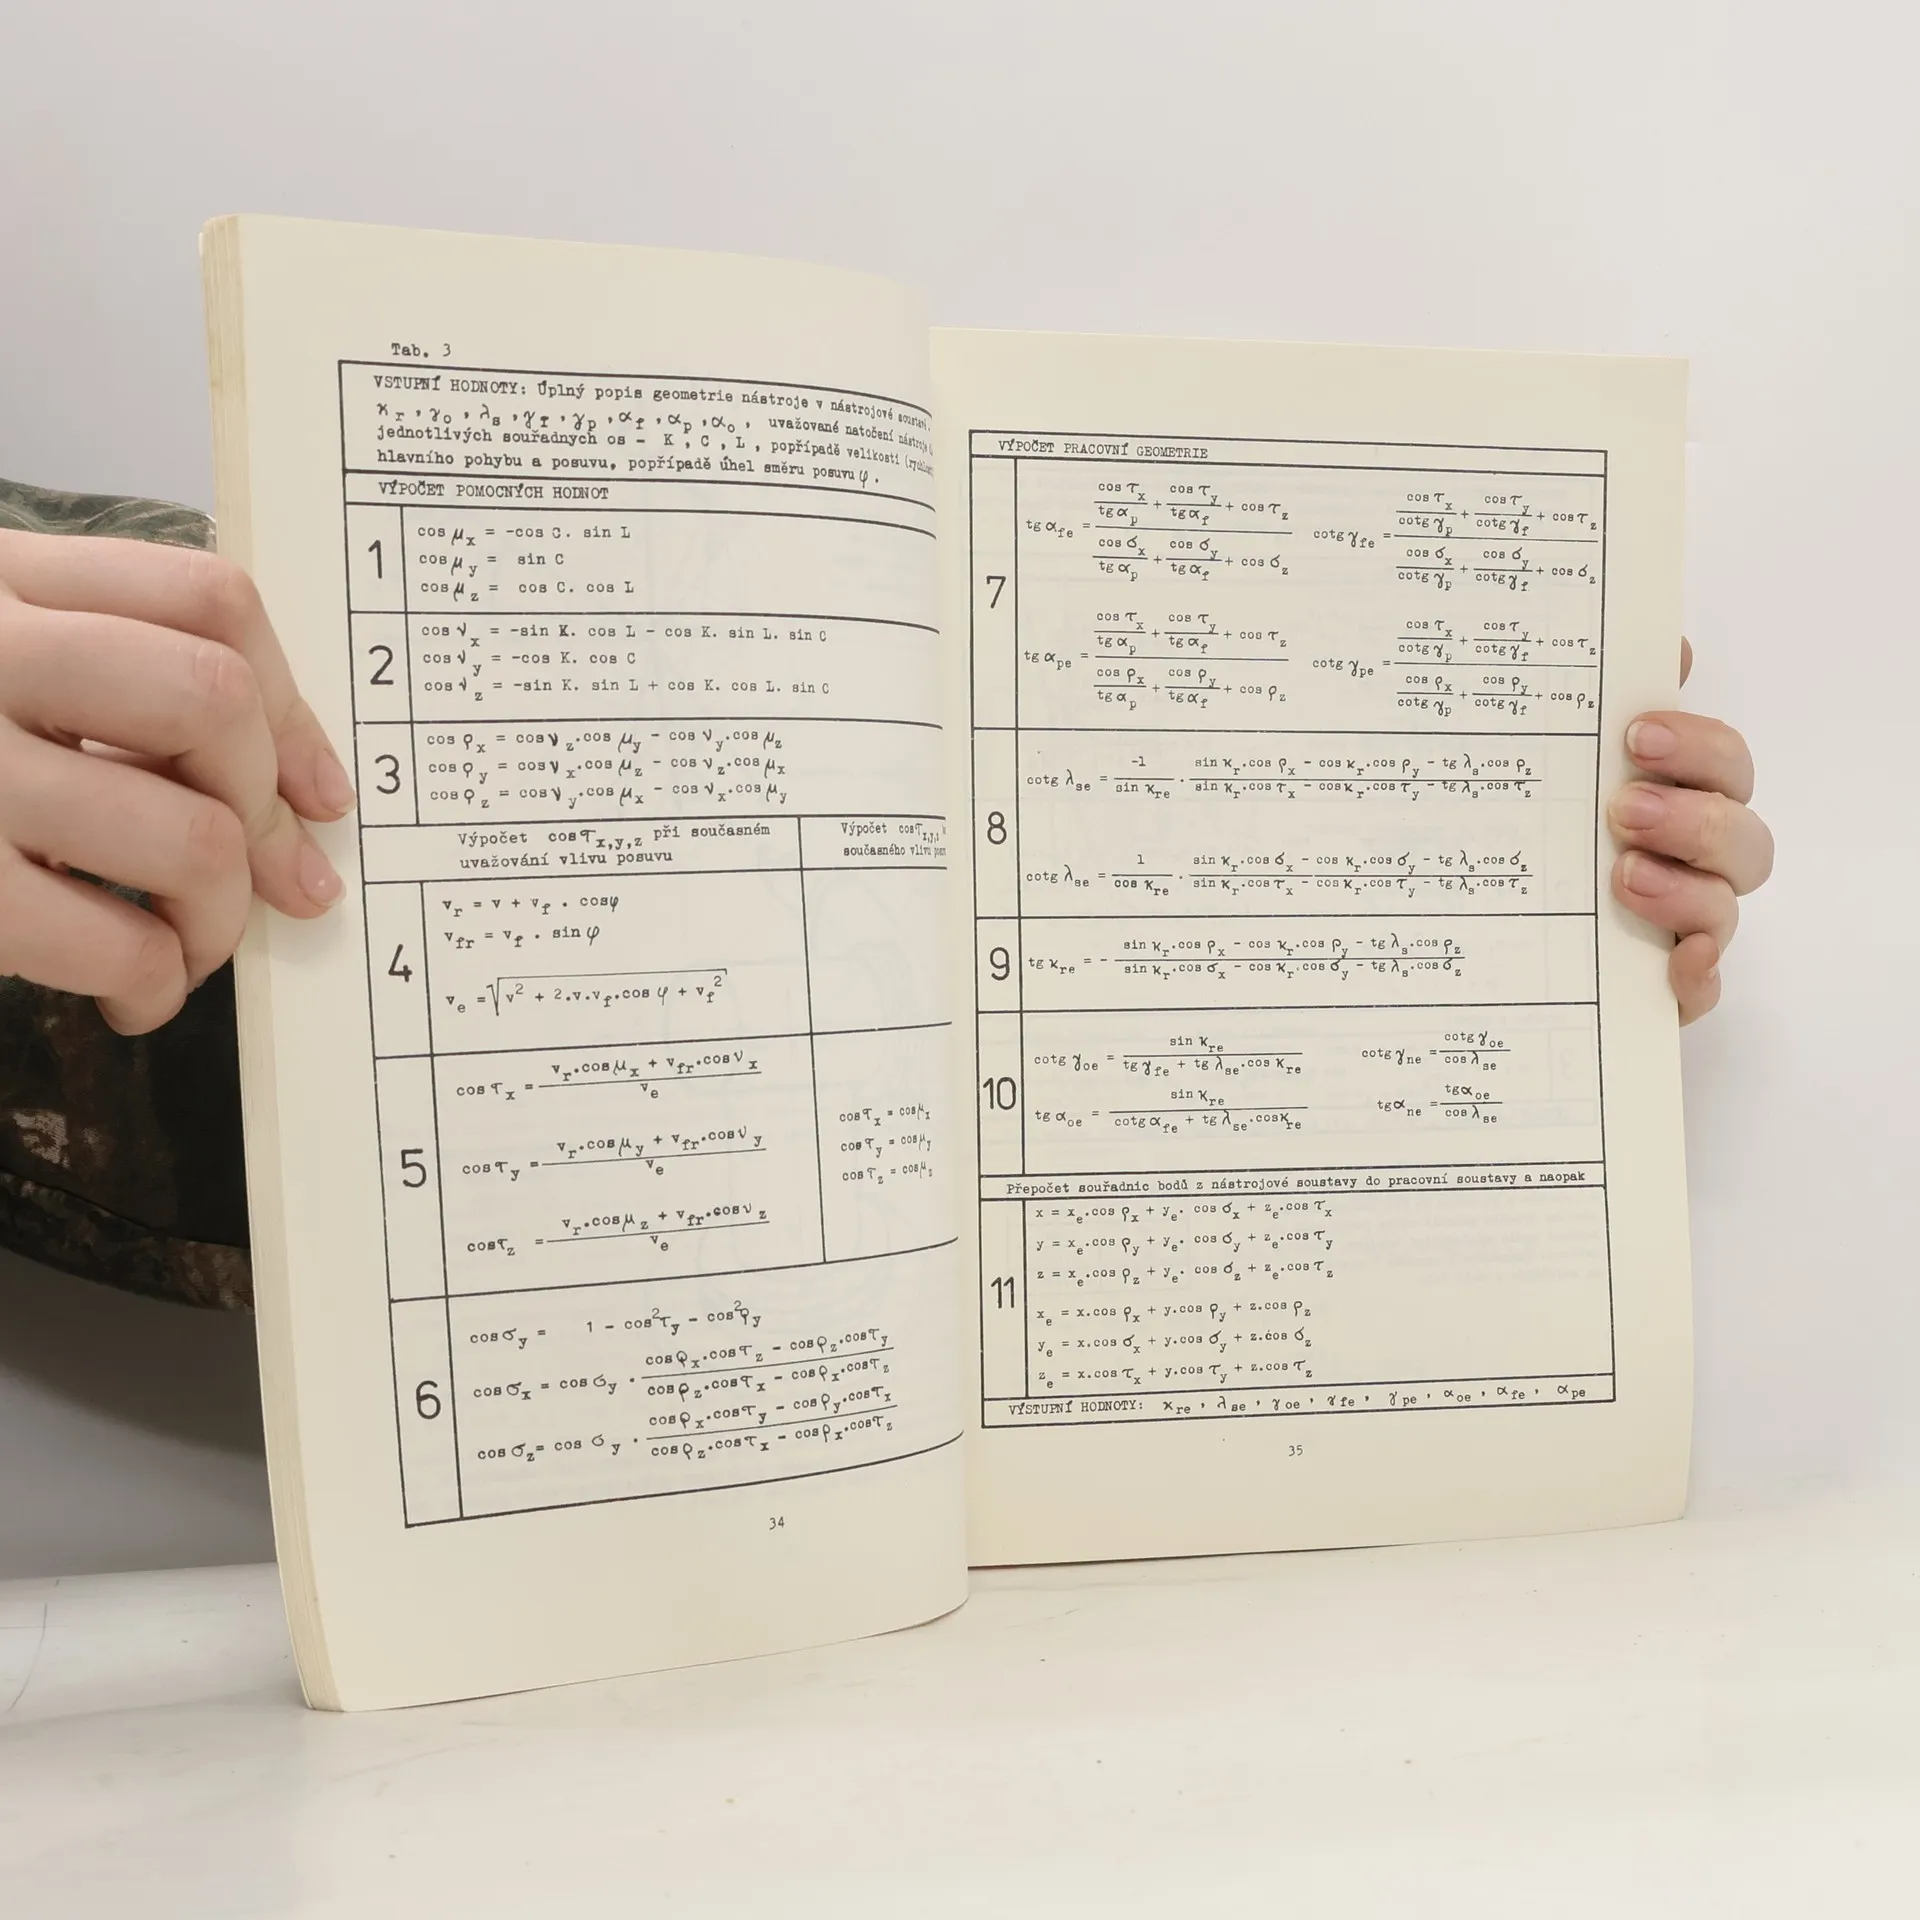 Tab. 3
VSTUPNÍ HODNOTY: Úplný popis geometrie nástroje v nástrojové soustavě.
ϰr , γo , λs , γf , γp , αf , αp , αo , uvažované natočení nástroje
jednotlivých souřadných os - K , C , L , popřípadě velikosti
hlavního pohybu a posuvu, popřípadě úhel směru posuvu φ .
VÝPOČET POMOCNÝCH HODNOT
1
cos μx = -cos C. sin L
cos μy = sin C
cos μz = cos C. cos L
2
cos νx = -sin K. cos L - cos K. sin L. sin C
cos νy = -cos K. cos C
cos νz = -sin K. sin L + cos K. cos L. sin C
3
cos ρx = cos νz.cos μy - cos νy.cos μz
cos ρy = cos νx.cos μz - cos νz.cos μx
cos ρz = cos νy.cos μx - cos νx.cos μy
Výpočet cos τx,y,z při současném
uvažování vlivu posuvu
Výpočet cos τx,y,z
současného vlivu
4
vr = v + vf . cosφ
vfr = vf . sin φ
ve = √(v² + 2.v.vf.cos φ + vf²)
5
cos τx = (vr.cos μx + vfr.cos νx) / ve
cos τy = (vr.cos μy + vfr.cos νy) / ve
cos τz = (vr.cos μz + vfr.cos νz) / ve
cos τx = cos μx
cos τy = cos μy
cos τz = cos μz
6
cos σy = 1 - cos²τy - cos²ρy
cos σx = cos σy . (cos ρx.cos τz - cos ρz.cos τy) / (cos ρz.cos τx - cos ρx.cos τz)
cos σz = cos σy . (cos ρx.cos τy - cos ρy.cos τx) / (cos ρz.cos τx - cos ρx.cos τz)
34
VÝPOČET PRACOVNÍ GEOMETRIE
7
tg αfe = (cos τx / tg αp + cos τy / tg αf + cos τz) / (cos σx / tg αp + cos σy / tg αf + cos σz)
cotg γfe = (cos τx / cotg γp + cos τy / cotg γf + cos τz) / (cos σx / cotg γp + cos σy / cotg γf + cos σz)
tg αpe = (cos τx / tg αp + cos τy / tg αf + cos τz) / (cos ρx / tg αp + cos ρy / tg αf + cos ρz)
cotg γpe = (cos τx / cotg γp + cos τy / cotg γf + cos τz) / (cos ρx / cotg γp + cos ρy / cotg γf + cos ρz)
8
cotg λse = -1 / sin ϰre . (sin ϰr.cos ρx - cos ϰr.cos ρy - tg λs.cos ρz) / (sin ϰr.cos τx - cos ϰr.cos τy - tg λs.cos τz)
cotg λse = 1 / cos ϰre . (sin ϰr.cos σx - cos ϰr.cos σy - tg λs.cos σz) / (sin ϰr.cos τx - cos ϰr.cos τy - tg λs.cos τz)
9
tg ϰre = - (sin ϰr.cos ρx - cos ϰr.cos ρy - tg λs.cos ρz) / (sin ϰr.cos σx - cos ϰr.cos σy - tg λs.cos σz)
10
cotg γoe = sin ϰre / (tg γfe + tg λse.cos ϰre)
cotg γne = cotg γoe / cos λse
tg αoe = sin ϰre / (cotg αfe + tg λse.cos ϰre)
tg αne = tg αoe / cos λse
Přepočet souřadnic bodů z nástrojové soustavy do pracovní soustavy a naopak
11
x = xe.cos ρx + ye. cos σx + ze.cos τx
y = xe.cos ρy + ye. cos σy + ze.cos τy
z = xe.cos ρz + ye. cos σz + ze.cos τz
xe = x.cos ρx + y.cos ρy + z.cos ρz
ye = x.cos σx + y.cos σy + z.cos σz
ze = x.cos τx + y.cos τy + z.cos τz
VÝSTUPNÍ HODNOTY: ϰre , λse , γoe , γfe , γpe , αoe , αfe , αpe
35